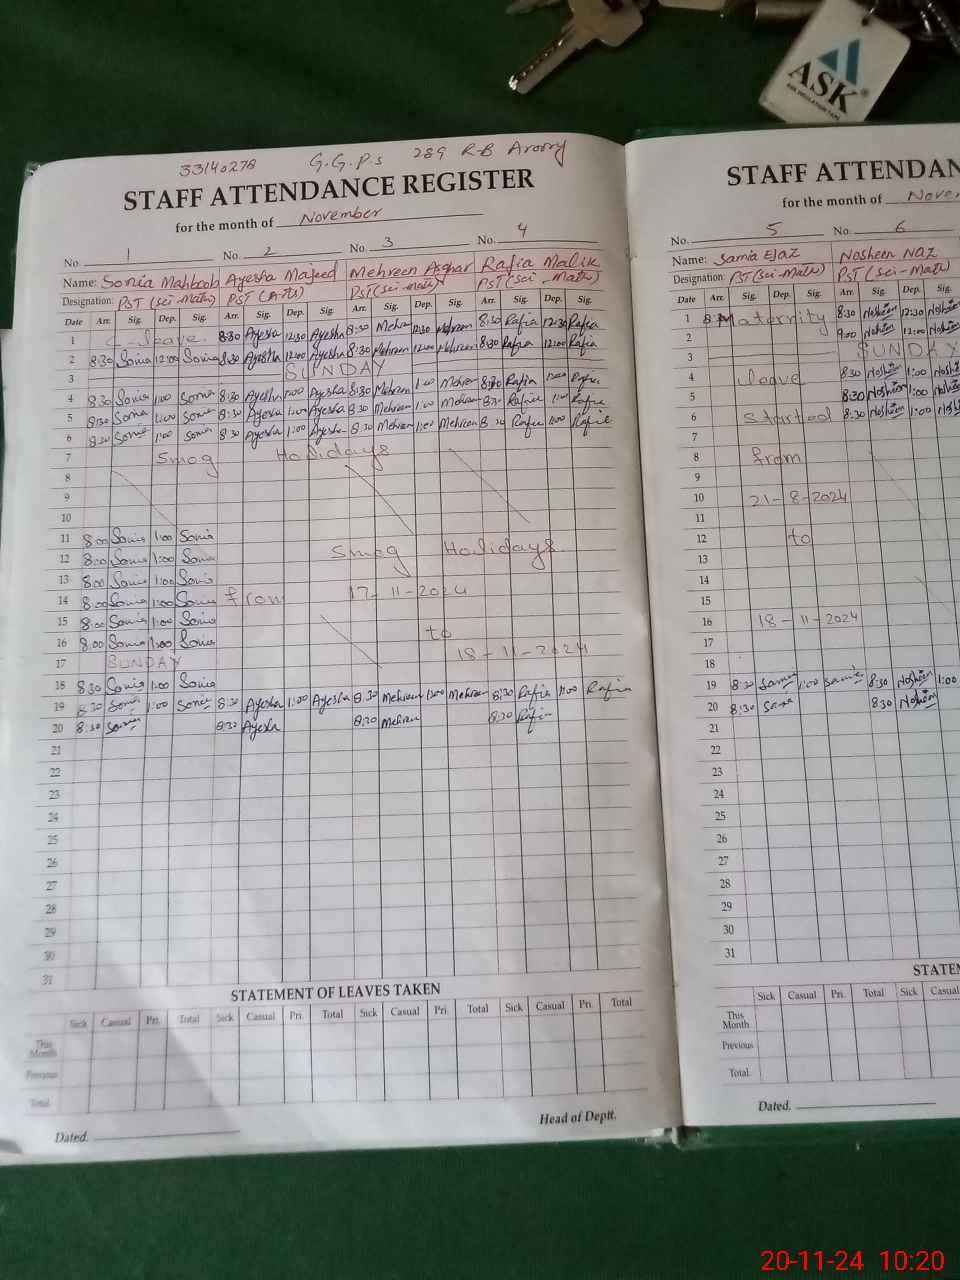 ASK
33140278 G.G.P.S 289 R-B Aroory
STAFF ATTENDANCE REGISTER
for the month of November
No. 1 No. 2 No. 3 No. 4
Name: Sonia Mahboob Ayesha Majeed Mehreen Asghar Rafia Malik
Designation: PST (sci-math) PST (Arts) PST (sci-math) PST (sci-math)
Date Arr. Sig. Dep. Sig. Arr. Sig. Dep. Sig. Arr. Sig. Dep. Sig. Arr. Sig. Dep. Sig.
1 C-leave 8:30 Ayesha 12:30 Ayesha 8:30 Mehreen 12:30 Mehreen 8:30 Rafia 12:30 Rafia
2 8:30 Sonia 12:00 Sonia 8:30 Ayesha 12:00 Ayesha 8:30 Mehreen 12:00 Mehreen 8:30 Rafia 12:00 Rafia
3 SUNDAY
4 8:30 Sonia 1:00 Sonia 8:30 Ayesha 1:00 Ayesha 8:30 Mehreen 1:00 Mehreen 8:30 Rafia 1:00 Rafia
5 8:30 Sonia 1:00 Sonia 8:30 Ayesha 1:00 Ayesha 8:30 Mehreen 1:00 Mehreen 8:30 Rafia 1:00 Rafia
6 8:30 Sonia 1:00 Sonia 8:30 Ayesha 1:00 Ayesha 8:30 Mehreen 1:00 Mehreen 8:30 Rafia 1:00 Rafia
7 Smog Holidays
8
9
10
11 8:00 Sonia 1:00 Sonia
12 8:00 Sonia 1:00 Sonia Smog Holidays
13 8:00 Sonia 1:00 Sonia
14 8:00 Sonia 1:00 Sonia from 17-11-2024
15 8:00 Sonia 1:00 Sonia
16 8:00 Sonia 1:00 Sonia to
17 SUNDAY 18-11-2024
18 8:30 Sonia 1:00 Sonia
19 8:30 Sonia 1:00 Sonia 8:30 Ayesha 1:00 Ayesha 8:30 Mehreen 1:00 Mehreen 8:30 Rafia 1:00 Rafia
20 8:30 Sonia 8:30 Ayesha 8:30 Mehreen 8:30 Rafia
21
22
23
24
25
26
27
28
29
30
31
STATEMENT OF LEAVES TAKEN
Sick Casual Pri. Total Sick Casual Pri. Total Sick Casual Pri. Total Sick Casual Pri. Total
This Month
Previous
Total
Dated. Head of Deptt.
STAFF ATTENDAN
for the month of Nove
No. 5 No. 6
Name: Samia Ejaz Nosheen Naz
Designation: PST (sci-Math) PST (sci-Math)
Date Arr. Sig. Dep. Sig. Arr. Sig. Dep. Sig.
1 Maternity 8:30 Nosheen 12:30 Nosheen
2 9:00 Nosheen 12:00 Nosheen
3 SUNDAY
4 leave 8:30 Nosheen 1:00 Nosheen
5 8:30 Nosheen 1:00 Nosheen
6 Started 8:30 Nosheen 1:00 Nosheen
7
8 from
9
10 21-8-2024
11
12 to
13
14
15
16 18-11-2024
17
18
19 8:30 Samia 1:00 Samia 8:30 Nosheen 1:00
20 8:30 Samia 8:30 Nosheen
21
22
23
24
25
26
27
28
29
30
31
STATE
Sick Casual Pri. Total Sick Casual
This Month
Previous
Total
Dated.
20-11-24 10:20